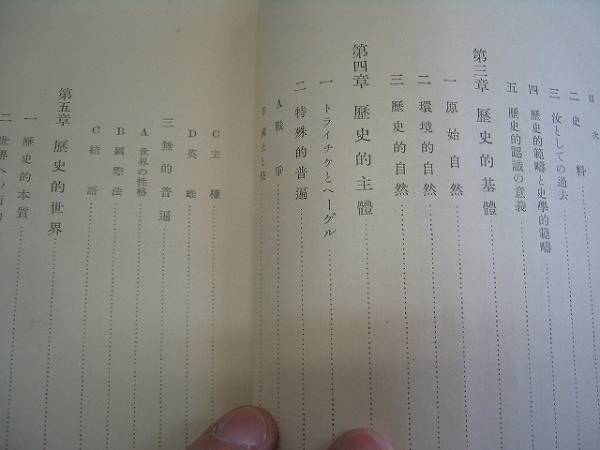 目次
二 史料
三 汝としての過去
四 歷史的範疇と史學的範疇
五 歷史的認識の意義
第三章 歷史的基體
一 原始自然
二 環境的自然
三 歷史的自然
第四章 歷史的主體
一 トライチケとヘーゲル
二 特殊的普遍
A 戰爭
C 主權
D 英雄
三 無的普遍
A 世界の性格
B 國際法
C 結語
第五章 歷史的世界
一 歷史的本質
二 世界への